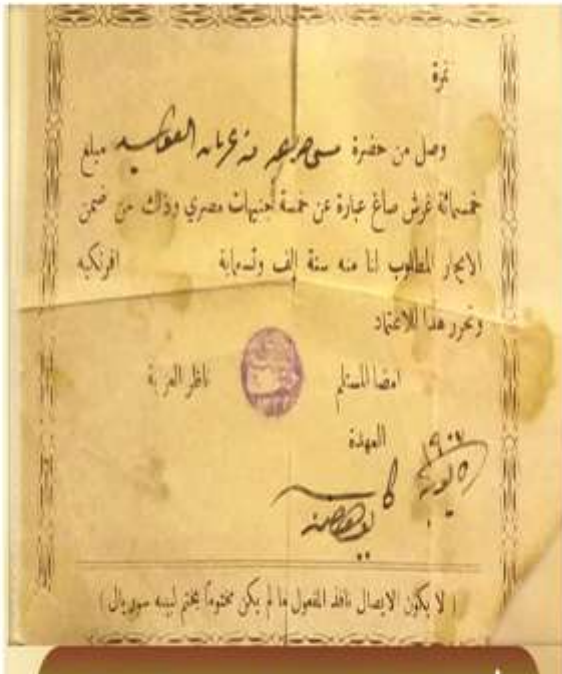 نمرة
وصل من حضرة من عربان مبلغ
خمسمائة غرش صاغ عبارة عن خمسة أجنيهات مصري وذلك من ضمن
الايجار المطلوب لنا منه سنة إلف وتسماية افرنكيه
وتحرر هذا للاعتماد
امضا المستلم ناظر العزبة
العهدة
١٩٠٧
( لا يكون الايصال نافذ المفعول ما لم يكن مختوماً بختم ليبه سوريال )